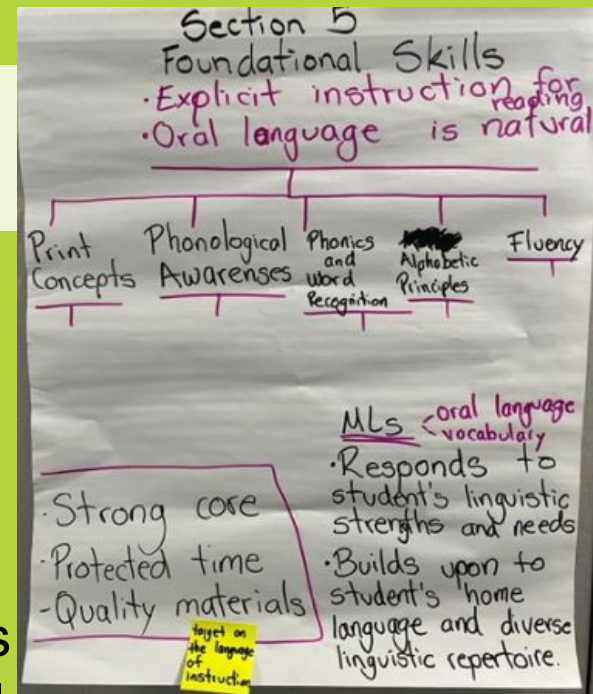 Section 5
Foundational Skills
·Explicit instruction for
reading
·Oral language is natural
Print
Concepts
Phonological
Awarenses
Phonics
and
Word
Recognition
Alphabetic
Principles
Fluency
MLs
oral language
vocabulary
·Responds to
student's linguistic
strenghs and needs
·Builds upon to
student's home
language and diverse
linguistic repertoire.
·Strong core
·Protected time
-Quality materials
target on
the language
of
instruction
s